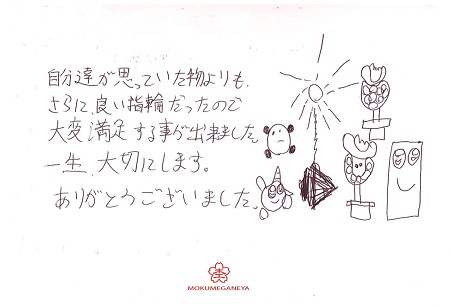 自分達が思っていた物よりも、
さらに、良い指輪だったので
大変満足する事が出来ました。
一生、大切にします。
ありがとうございました。
MOKUMEGANEYA